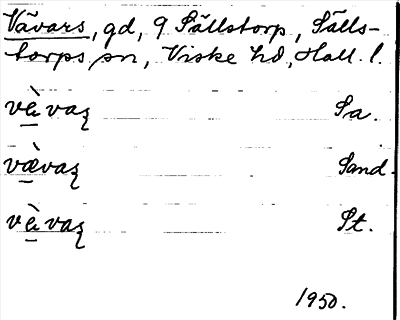 Vävars, gd, 9 Sällstorp, Sälls-
torps sn, Viske hd, Hall. l.
vä̀vaꝛ Sa.
væ̀vaꝛ Sand.
vä̀vaꝛ St.
1950.